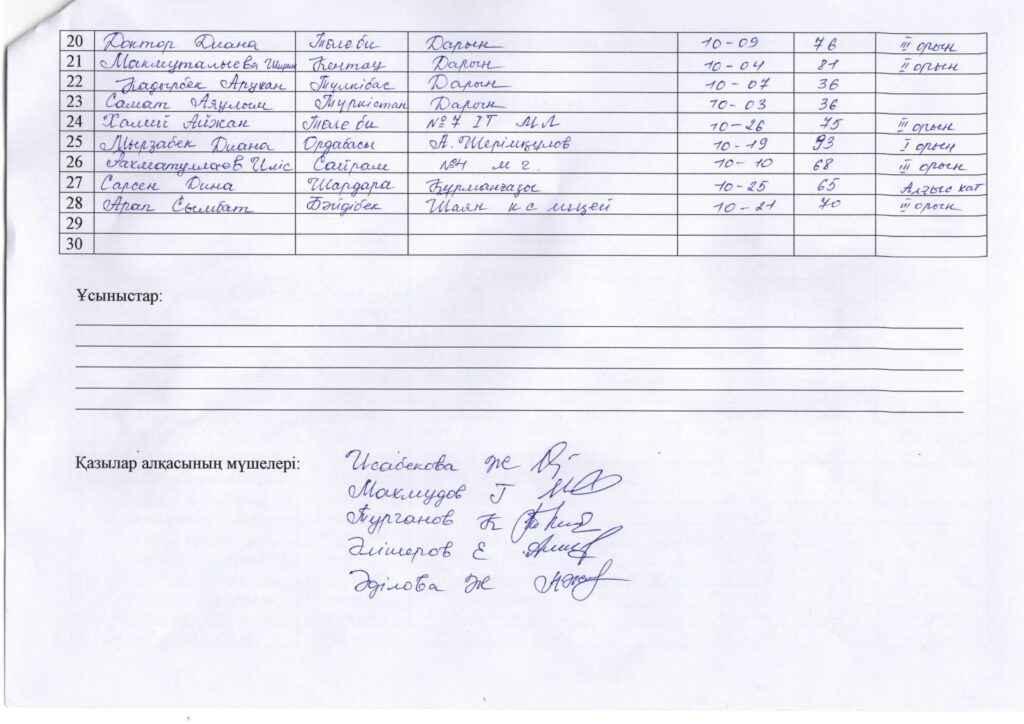 20 Доктор Диана Төле би Дарын 10-09 76 III орын
21 Махмуталиева Кентау Дарын 10-04 81 II орын
22 Қадырбек Аружан Түлкібас Дарын 10-07 36
23 Самат Аяулым Түркістан Дарын 10-03 36
24 Халый Айжан Төле би №7 IT МЛ 10-26 75 III орын
25 Мырзабек Диана Ордабасы А. Шерімқұлов 10-19 93 I орын
26 Сайрам №4 м г.. 10-10 68 III орын
27 Сарсен Дина Шардара Құрманғазы 10-25 65 Алғыс хат
28 Арап Сымбат Бәйдібек Шаян к с лицей 10-21 70 III орын
29
30
Ұсыныстар:
Қазылар алқасының мүшелері: Исабекова Ж
Махмудов Г
Турганов К
Әлішеров Е
Әділова Ж